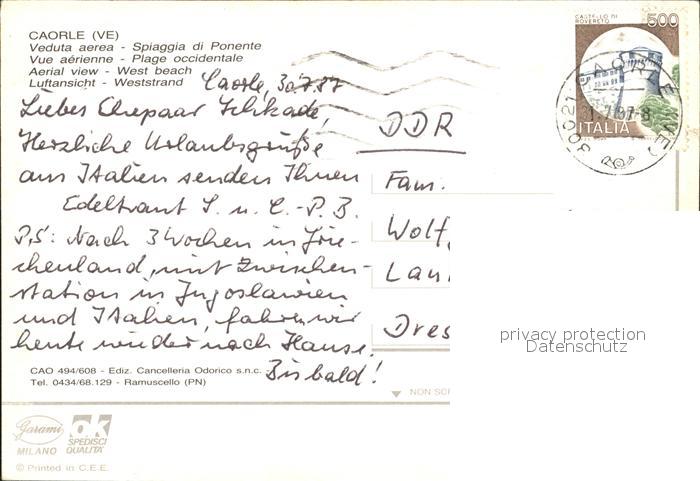 CAORLE (VE)
Veduta aerea - Spiaggia di Ponente
Vue aérienne - Plage occidentale
Aerial view - West beach
Luftansicht - Weststrand
Caorle, 30.7.87
Liebes Ehepaar
Herzliche Urlaubsgrüße
aus Italien senden Ihnen
Edeltraut S. u. C.-P. B.
P.S: Nach 3 Wochen in Grie-
chenland, mit Zwischen-
station in Jugoslawien
und Italien, fahren wir
heute wieder nach Hause.
Bis bald!
CAO 494/608 - Ediz. Cancelleria Odorico s.n.c.
Tel. 0434/68.129 - Ramuscello (PN)
Garami
MILANO
ok
SPEDISCI
QUALITA'
© Printed in C.E.E.
CASTELLO DI
ROVERETO
500
ITALIA
30021 CAORLE (VE)
DDR
Fam.
Wolf
Lan
Dres
NON SCR
privacy protection
Datenschutz